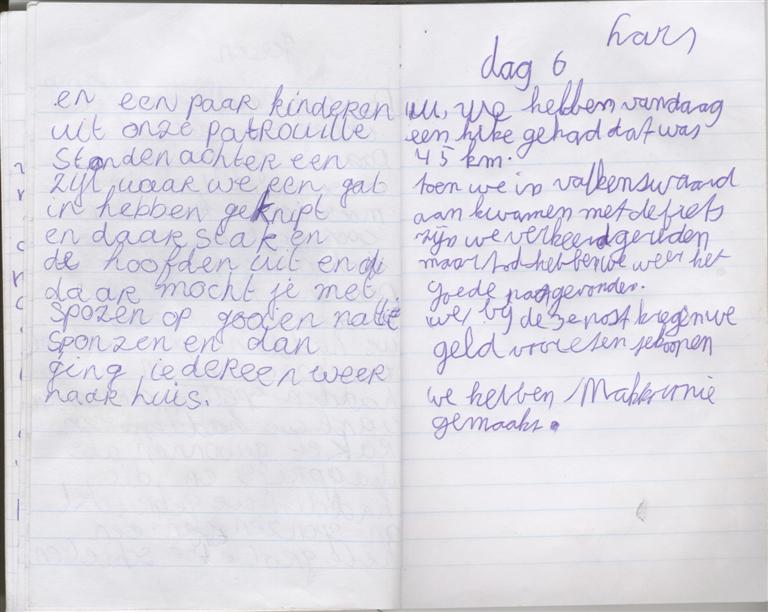 en een paar kinderen
uit onze patrouille
stonden achter een
zijl waar we een gat
in hebben geknipt
en daar staken
de hoofden uit en
daar mocht je met
spozen op gooien natte
sponzen en dan
ging iedereen weer
naar huis.
Lars
dag 6
we hebben vandaag
een hike gehad dat was
45 km.
toen we in valkenswaard
aan kwamen met de fiets
zijn we verkeerd gereden
maar hebben we weer het
goede gevonden.
bij de 3e post kregen we
geld
we hebben Makkronie
gemaakt.